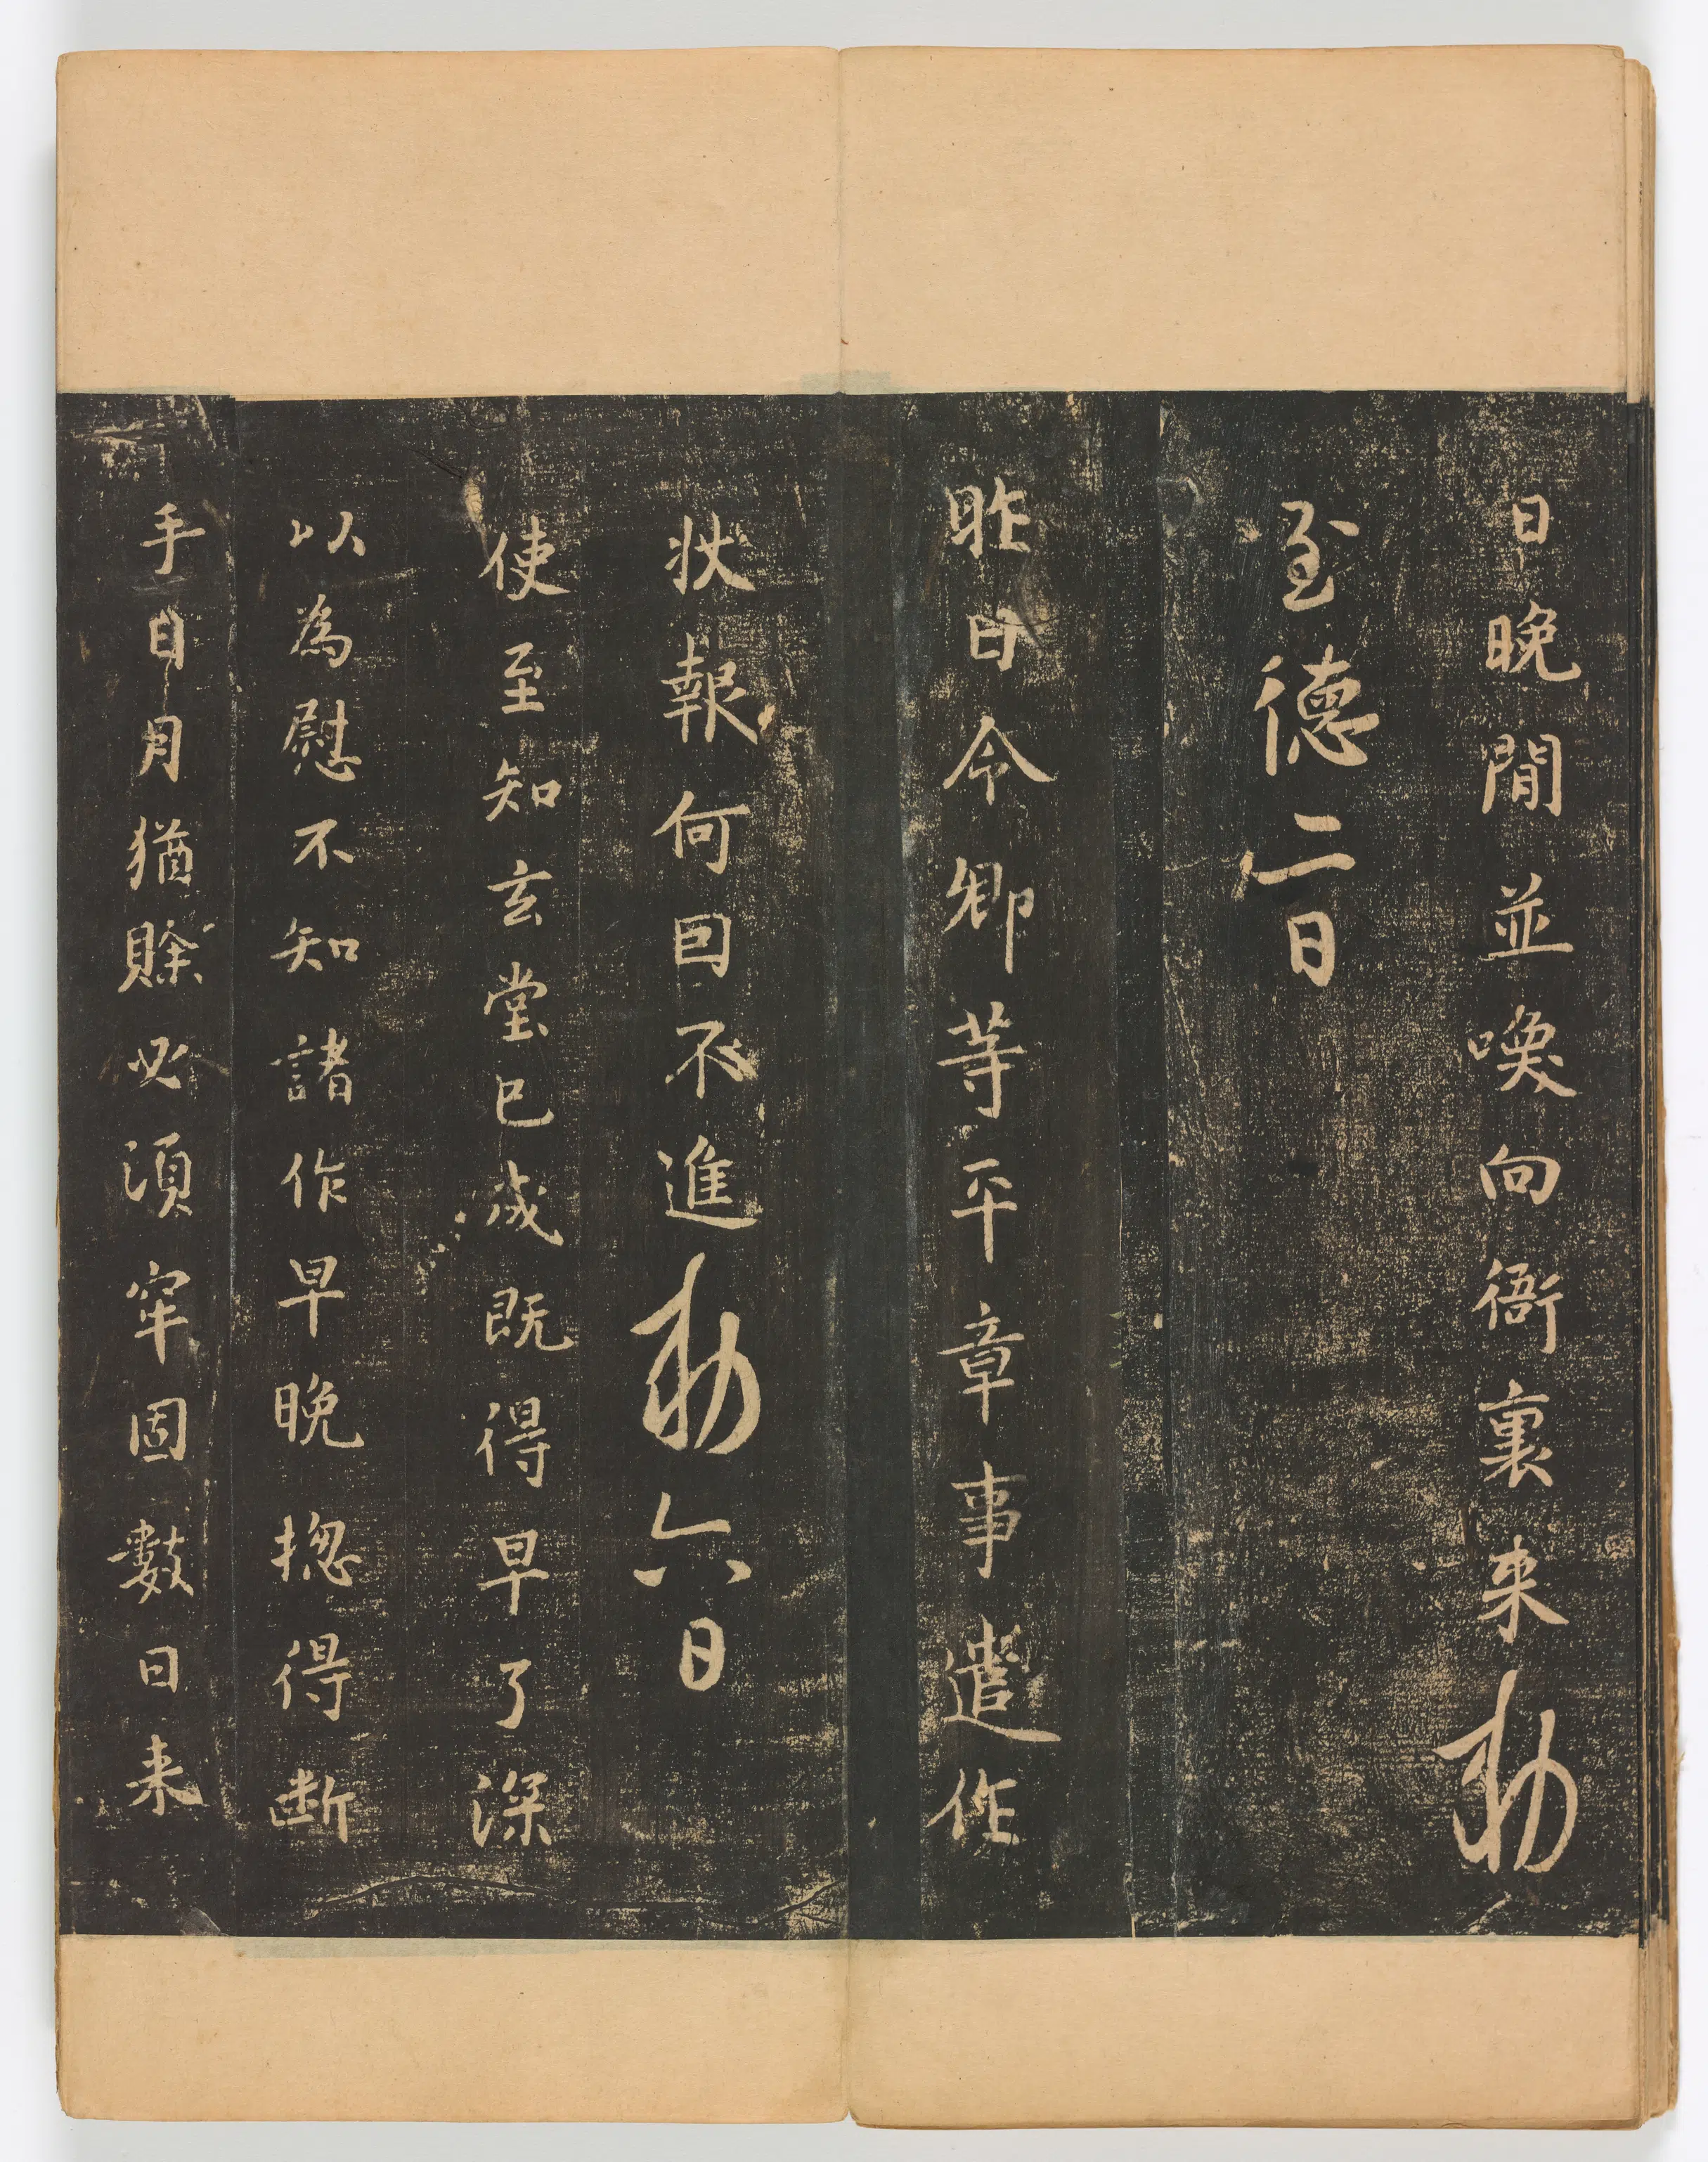 日晚間並喚向衙裏来勅
至德二日
昨日令卿等平章事遣作
狀報何因不進勅六日
使至知玄堂已成既得早了深
以為慰不知諸作早晚揔得斷
手日月猶賖必須牢固數日来